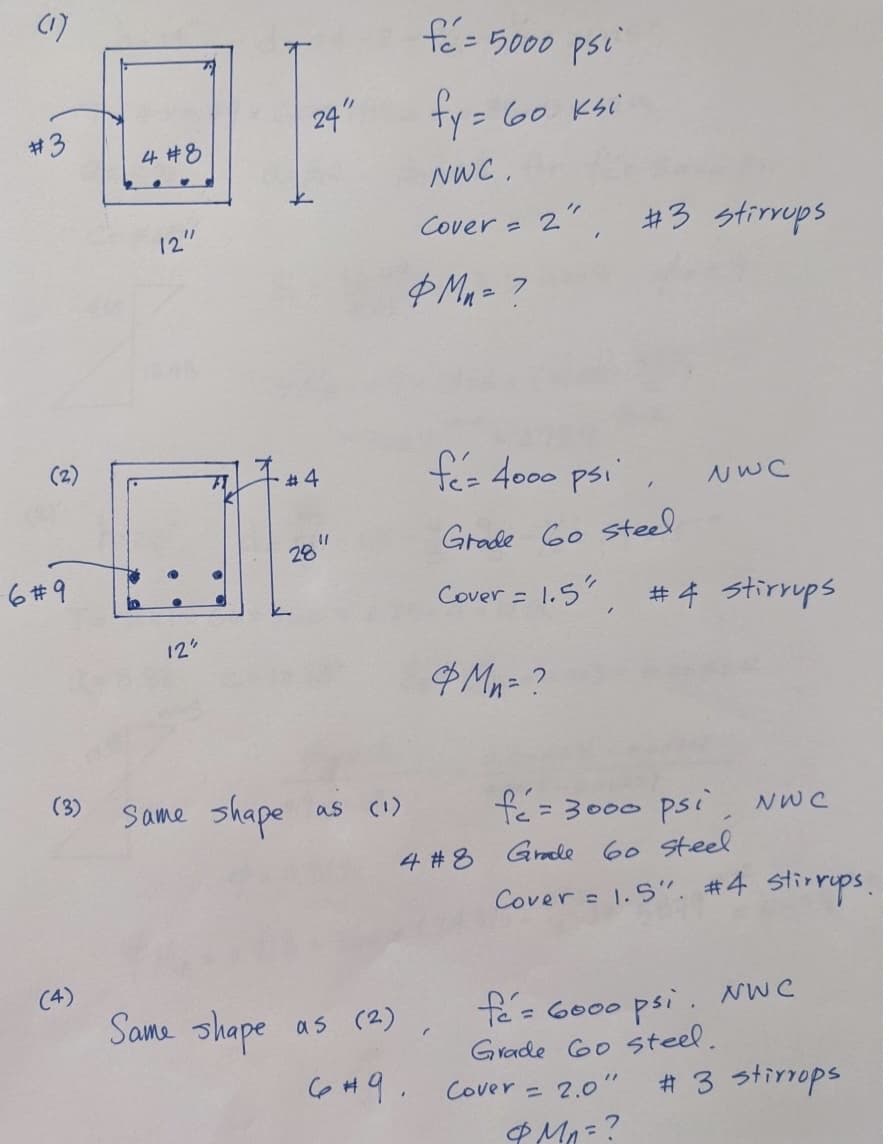 (1)
f'c = 5000 psi
24"
fy = 60 ksi
#3
4 #8
NWC.
Cover = 2", #3 stirrups
12"
ϕMn = ?
(2)
#4
f'c = 4000 psi, NWC
28"
Grade 60 steel
6#9
Cover = 1.5", #4 stirrups
12"
ϕMn = ?
(3) Same shape as (1) f'c = 3000 psi, NWC
4 #8 Grade 60 steel
Cover = 1.5". #4 stirrups.
(4)
Same shape as (2), f'c = 6000 psi. NWC
Grade 60 steel.
6 #9. Cover = 2.0" #3 stirrups
ϕMn = ?